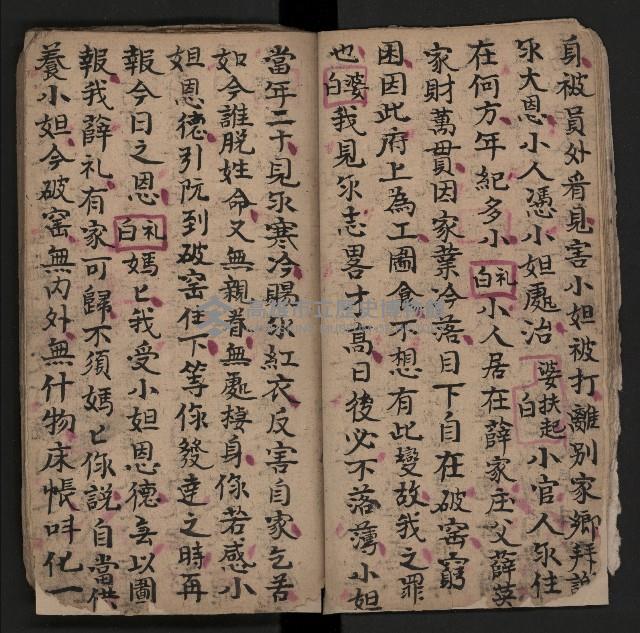 身被員外看見害小姐被打離別家鄉拜
你大恩小人憑小姐處治婆扶起白小官人你住
在何方年紀多小礼白小人居在薛家庄父薛英
家財萬貫因家業冷落目下自在破窑窮
困因此府上為工圖食不想有此變故我之罪
也婆白我見你志畧才高日後必不落薄小姐
當年二十見你寒冷賜你紅衣反害自家乞苦
如今誰脱姓命又無親眷無處棲身你若感小
姐恩德引阮到破窑住下等你發達之時再
報今日之恩礼白媽匕我受小姐恩德無以圖
報我薛礼有家可歸不須媽匕你說自當供
養小姐今破窑無内外無什物床帳呌化一
高雄市立歷史博物館